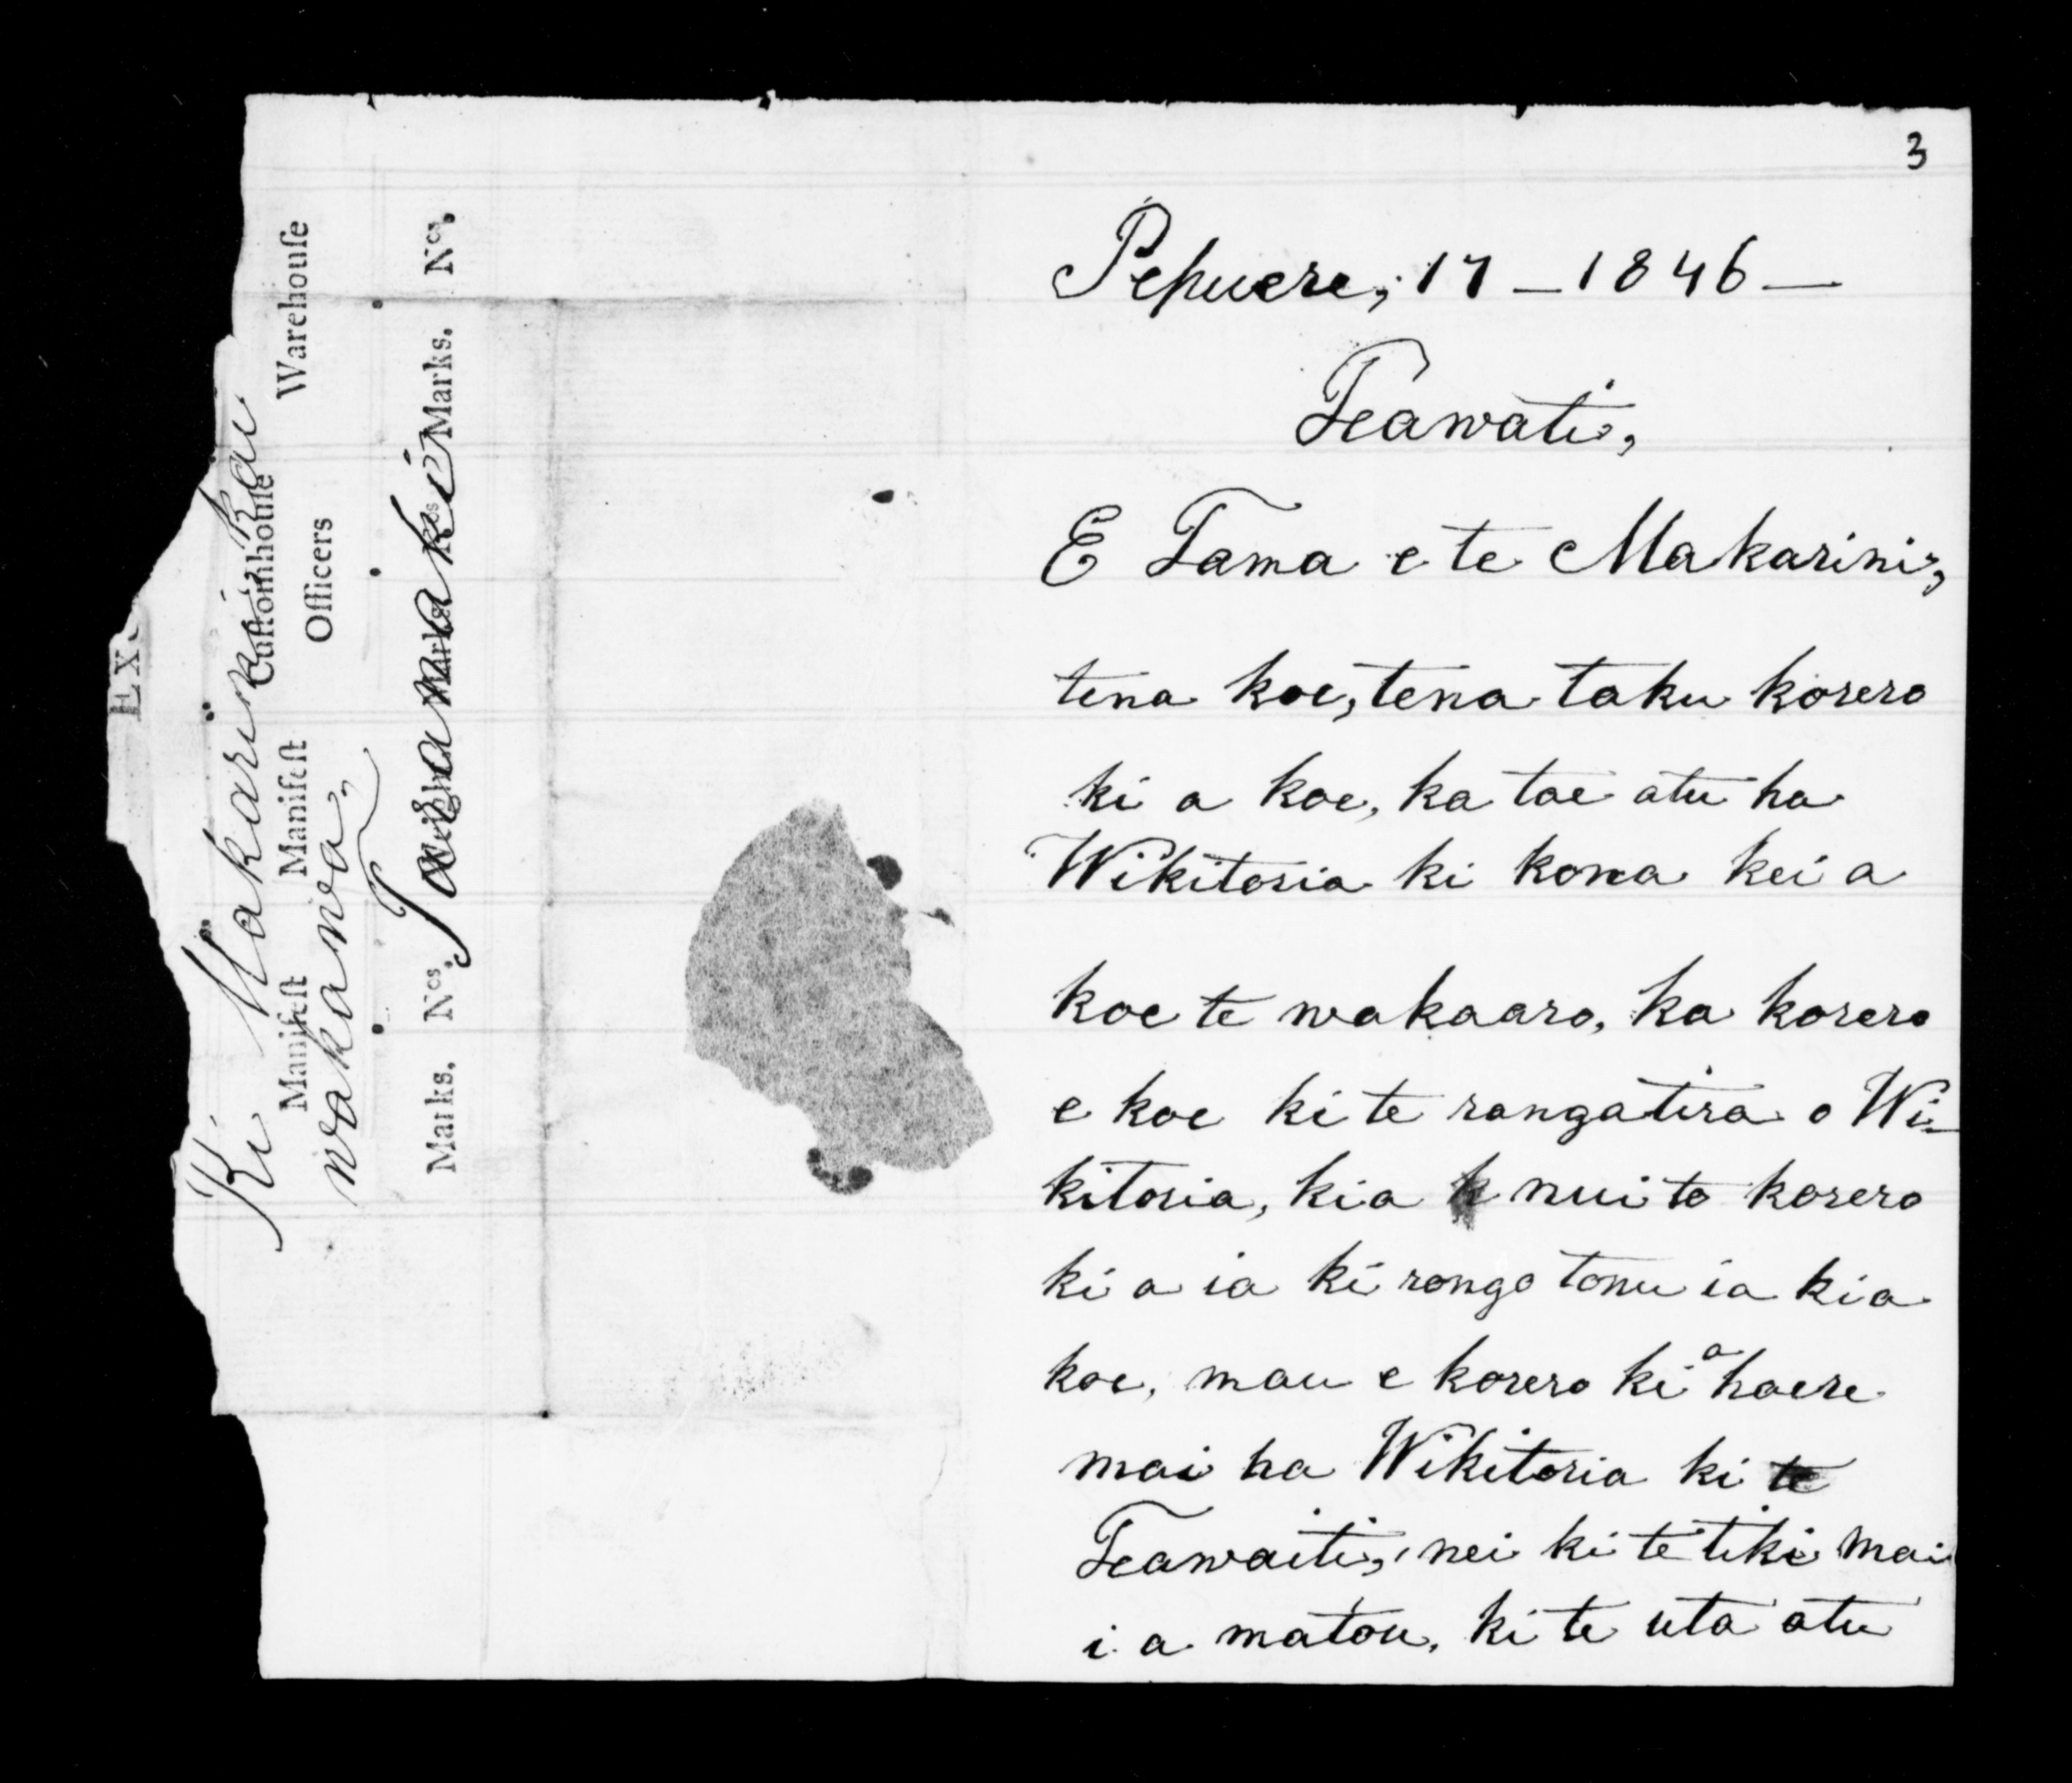 3
Pepuere, 17 – 1846 –
Teawati,
E Tama e te Makarini,
tena koe, tena taku korero
ki a koe, ka tae atu ha
Wikitoria ki kona kei a
koe te wakaaro, ka korero
e koe ki te rangatira o Wi-
kitoria, kia k nui to korero
ki a ia ki rongo tonu ia kia
koe, mau e korero ki a haere
mai ha Wikitoria ki te
Teawaiti, nei ki te tiki mai
i a matou, ki te uta atu
EX
Ki Makarini, kai
Manifest Manifest Customhouse Warehouse
Officers
wakawa,
Taranaki
Marks. Nos. Weight Marks. Nos. Marks. Nos.